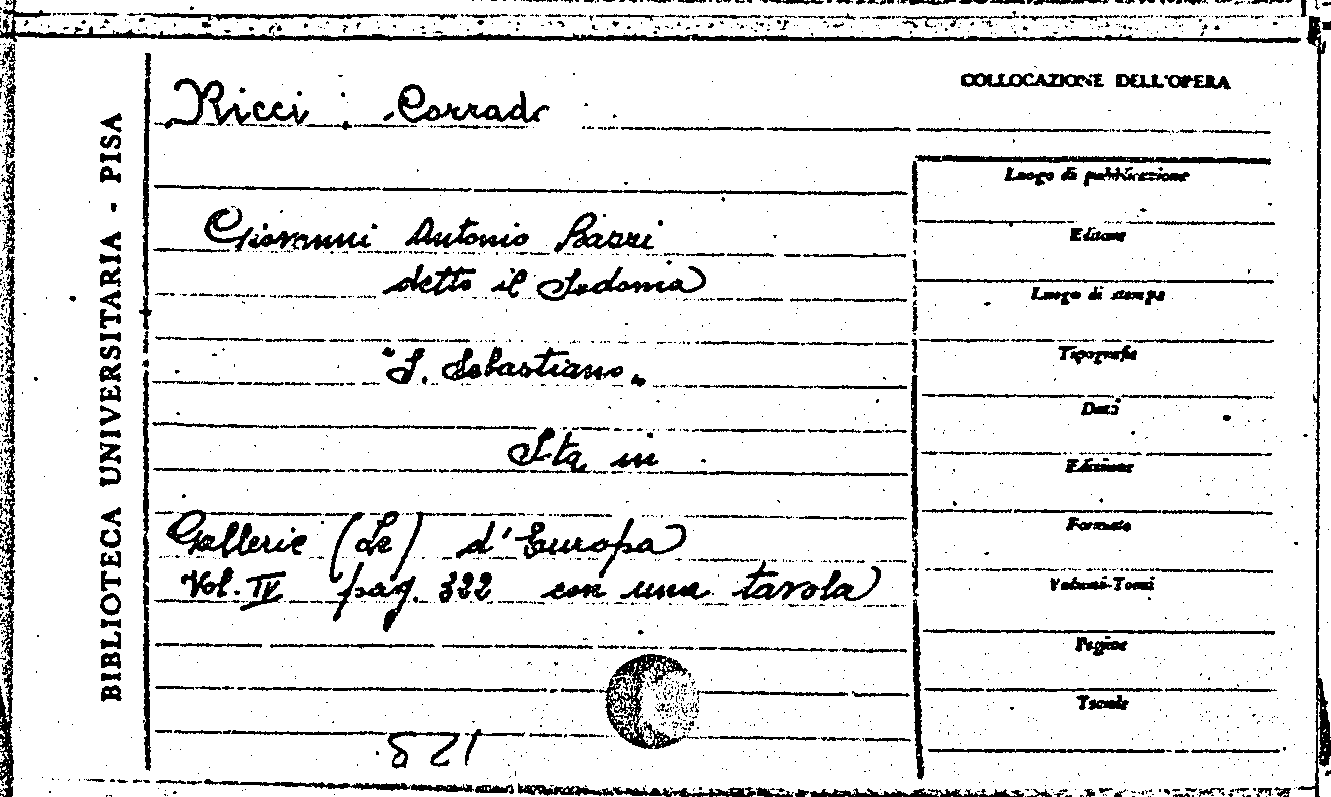 BIBLIOTECA UNIVERSITARIA - PISA
Ricci : Corrado
COLLOCAZIONE DELL'OPERA
Giovanni Antonio Bazzi
detto il Sodoma
"S. Sebastiano„
Sta in
Gallerie (Le) d'Europa
Vol. IV pag. 322 con una tavola
Luogo di pubblicazione
Editore
Luogo di stampa
Tipografia
Data
Edizione
Formato
Volumi-Tomi
Pagine
Tavole